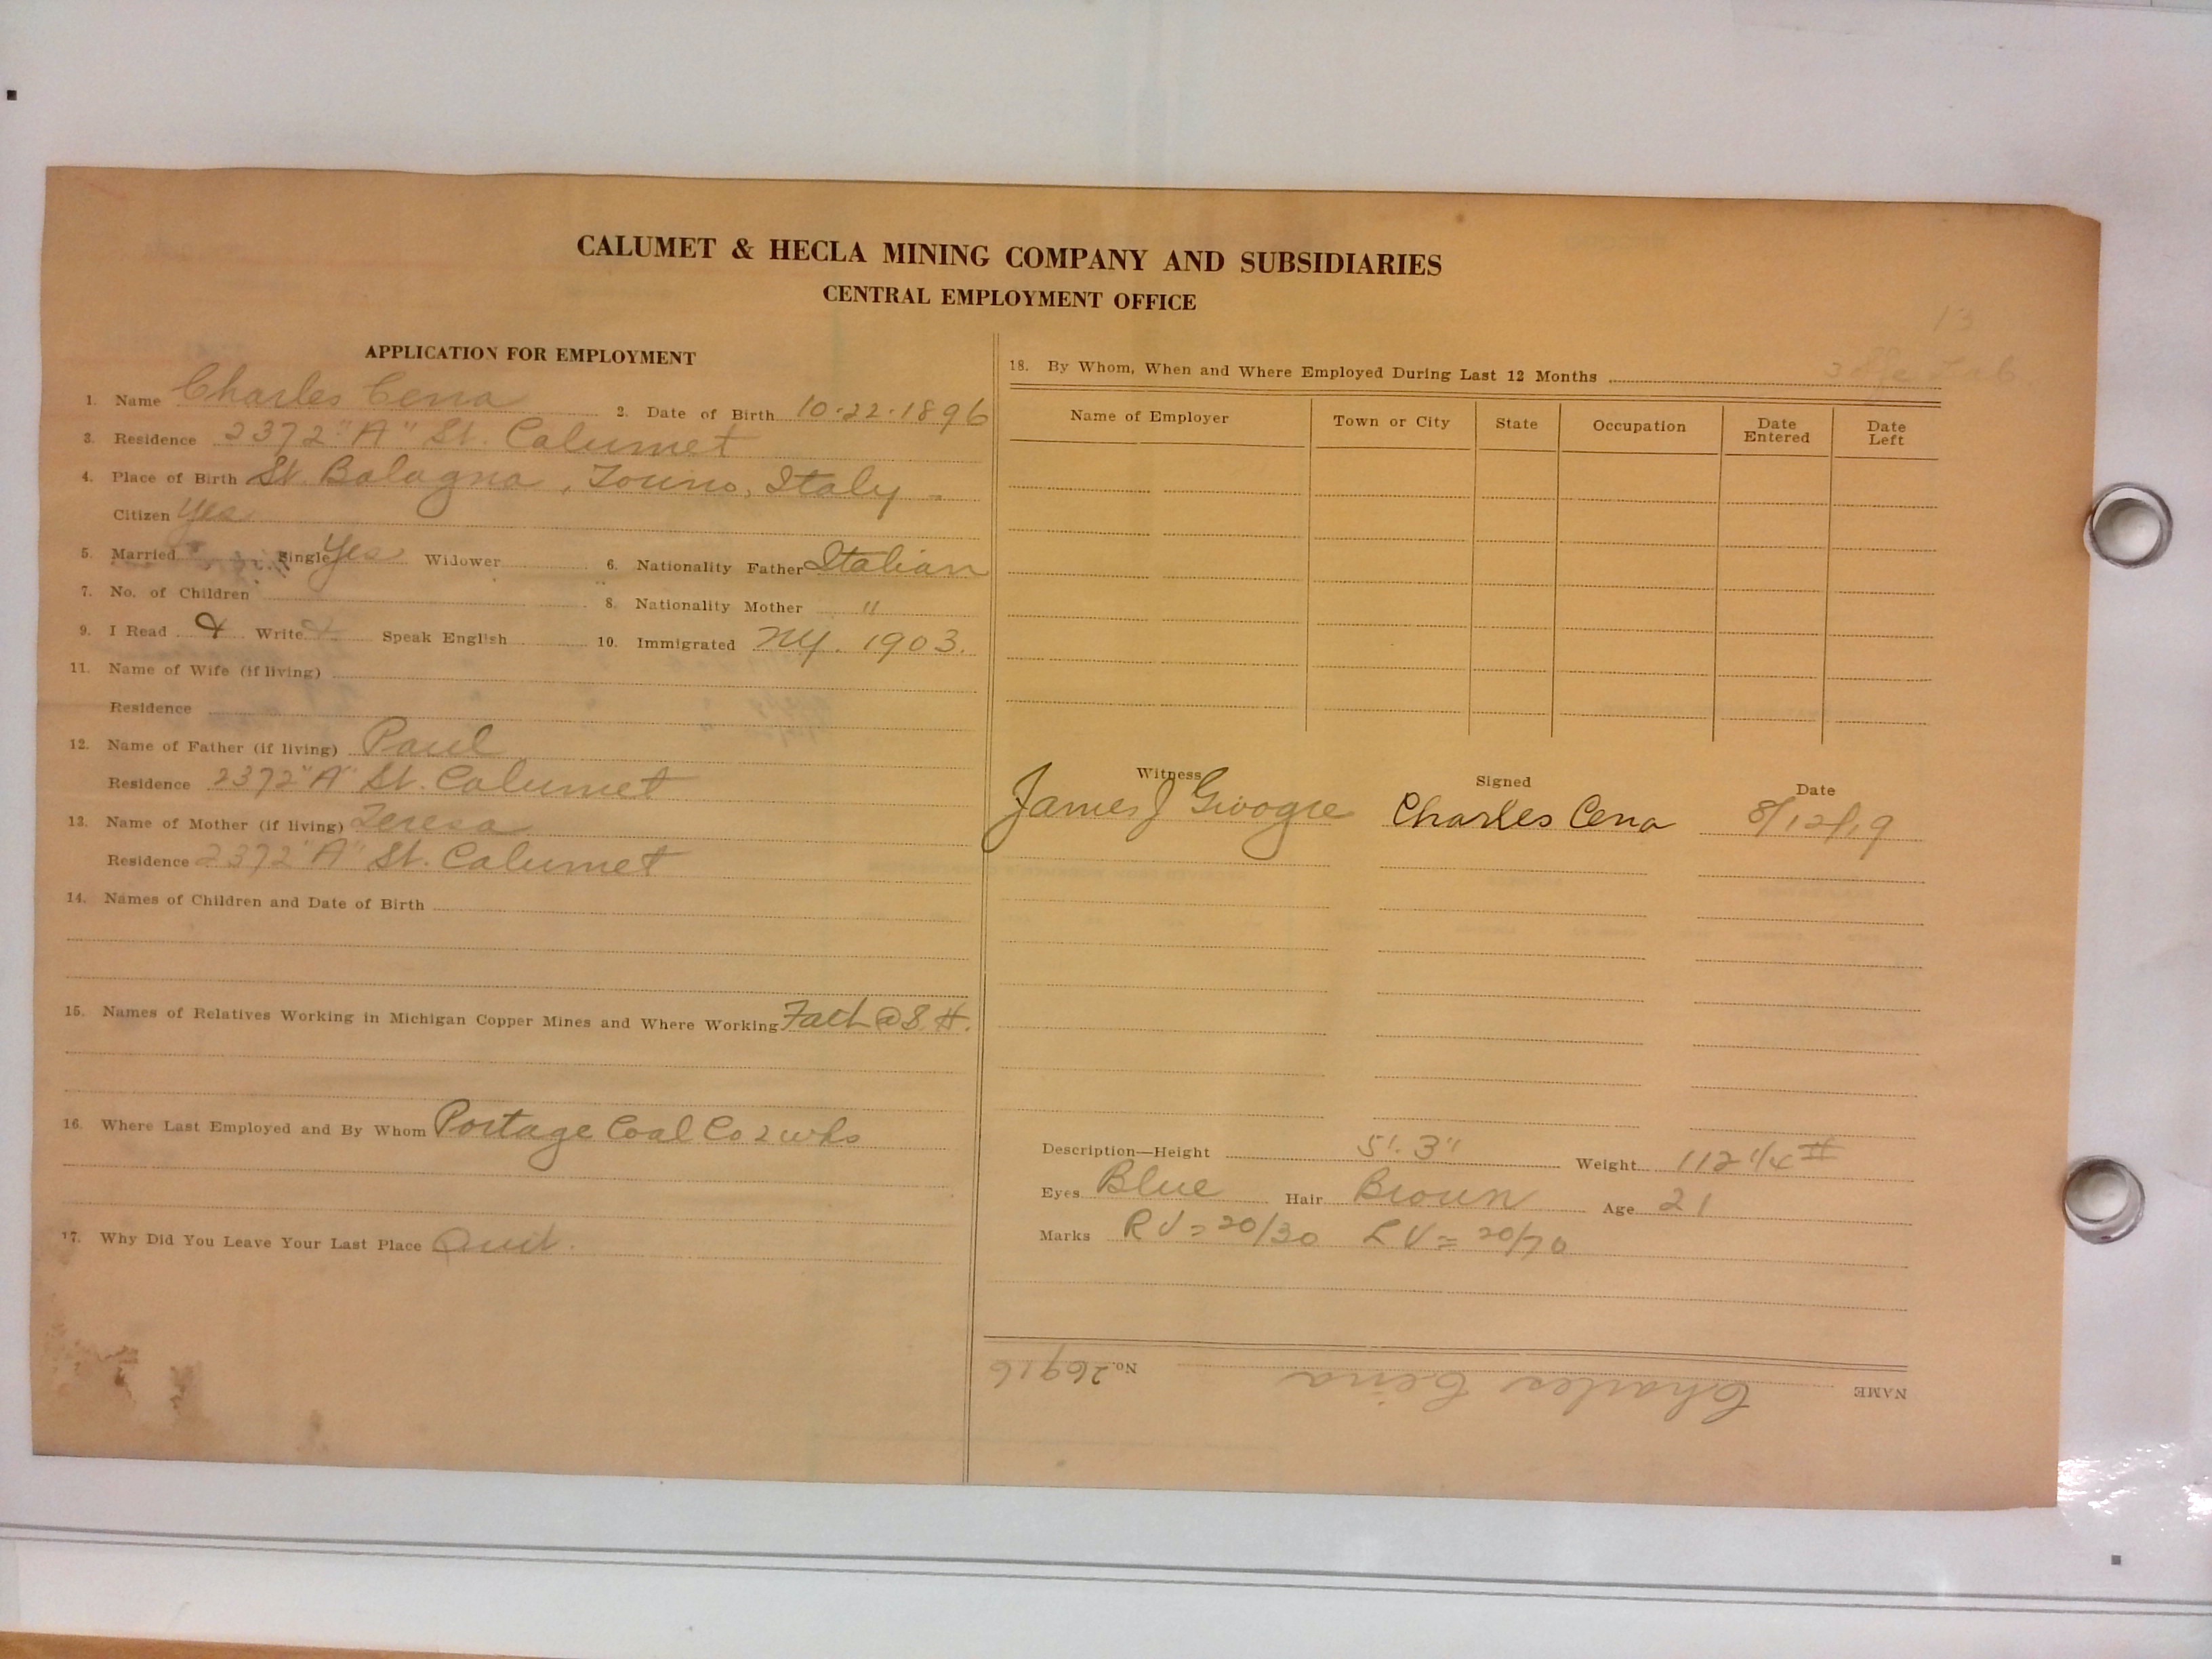 CALUMET & HECLA MINING COMPANY AND SUBSIDIARIES
CENTRAL EMPLOYMENT OFFICE
13
APPLICATION FOR EMPLOYMENT
1. Name Charles Cena 2. Date of Birth 10-22-1896
3. Residence 2372 "A" St. Calumet
4. Place of Birth St. Balagna, Torino, Italy
Citizen Yes
5. Married Single Yes Widower 6. Nationality Father Italian
7. No. of Children 8. Nationality Mother "
9. I Read & Write Speak English 10. Immigrated NY. 1903.
11. Name of Wife (if living)
Residence
12. Name of Father (if living) Paul
Residence 2372 "A" St. Calumet
13. Name of Mother (if living) Teresa
Residence 2372 "A" St. Calumet
14. Names of Children and Date of Birth
15. Names of Relatives Working in Michigan Copper Mines and Where Working Fath @ S. H.
16. Where Last Employed and By Whom Portage Coal Co 2 wks
17. Why Did You Leave Your Last Place Quit.
18. By Whom, When and Where Employed During Last 12 Months
Name of Employer Town or City State Occupation Date Entered Date Left
Witness Signed Date
James J Charles Cena 8/12/19
Description—Height 5'. 3" Weight 112 1/4 #
Eyes Blue Hair Brown Age 21
Marks RV = 20/30 LV = 20/70
NAME Charles Ceina No. 26916